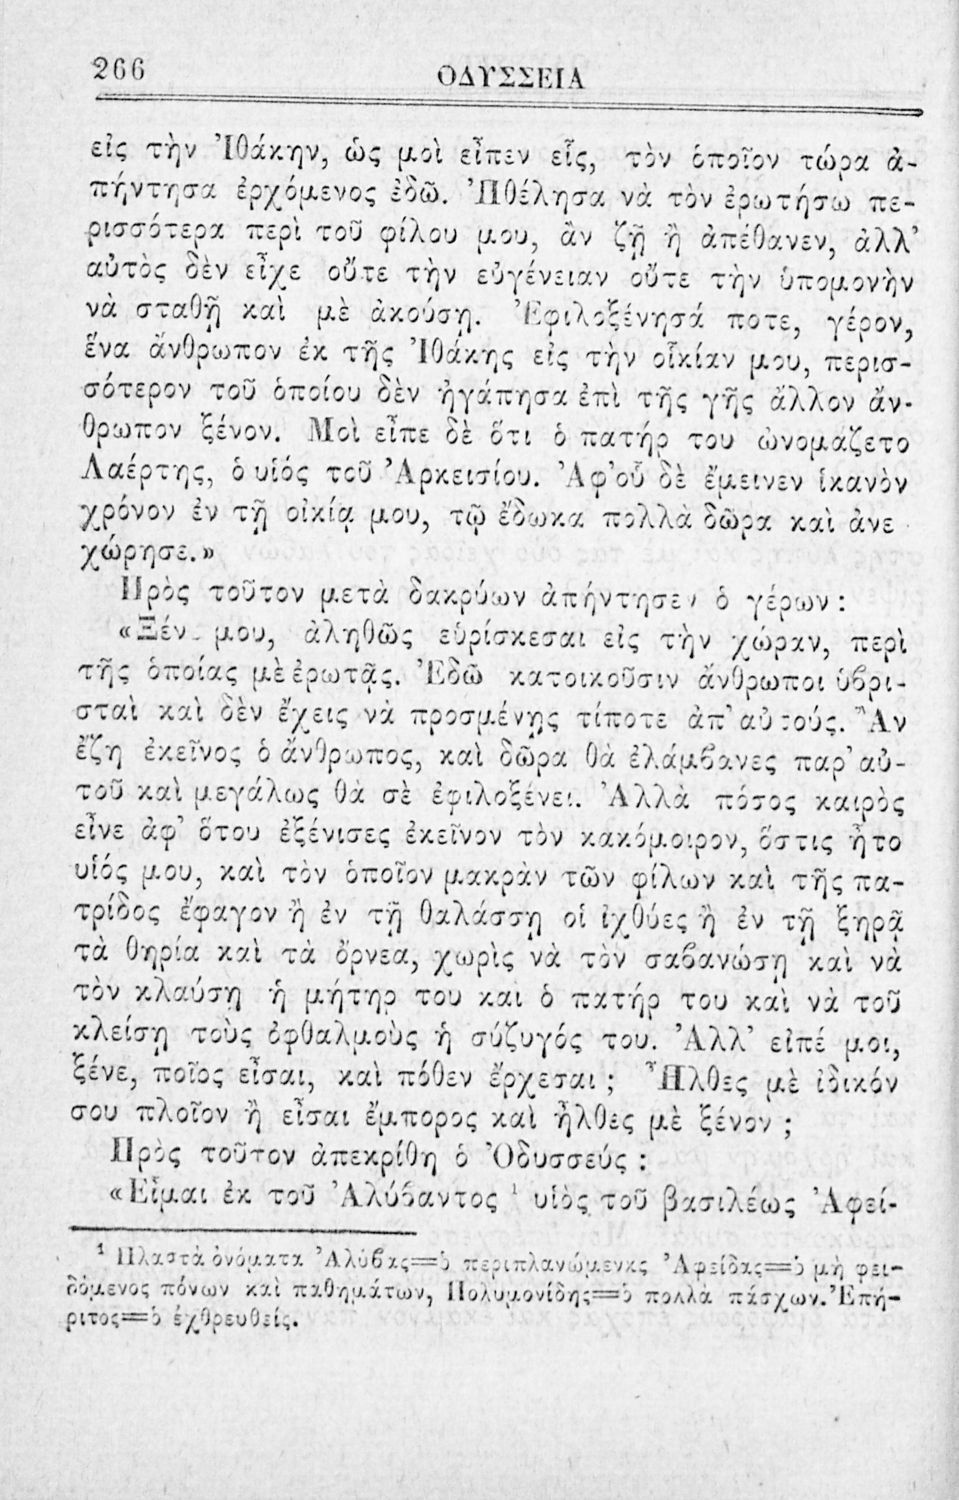 266
ΟΔΥΣΣΕΙΑ
εἰς τὴν Ἰθάκην, ὡς μοὶ εἶπεν εἷς, τὸν ὁποῖον τώρα ἀ-
πήντησα ἐρχόμενος ἐδῶ. Ἠθέλησα νὰ τὸν ἐρωτήσω πε-
ρισσότερα περὶ τοῦ φίλου μου, ἂν ζῇ ἢ ἀπέθανεν, ἀλλ’
αὐτὸς δὲν εἶχε οὔτε τὴν εὐγένειαν οὔτε τὴν ὑπομονὴν
νὰ σταθῇ καὶ μὲ ἀκούσῃ. Ἐφιλοξένησά ποτε, γέρον,
ἕνα ἄνθρωπον ἐκ τῆς Ἰθάκης εἰς τὴν οἶκίαν μου, περισ-
σότερον τοῦ ὁποίου δὲν ἠγάπησα ἐπὶ τῆς γῆς ἄλλον ἄν-
θρωπον ξένον. Μοὶ εἶπε δὲ ὅτι ὁ πατήρ του ὠνομάζετο
Λαέρτης, ὁ υἱός τοῦ Ἀρκεισίου. Ἀφ’ οὗ δὲ ἔμεινεν ἱκανὸν
χρόνον ἐν τῇ οἰκίᾳ μου, τῷ ἔδωκα πολλὰ δῶρα καὶ ἀνε
χώρησε.»
Πρὸς τοῦτον μετὰ δακρύων ἀπήντησεν ὁ γέρων:
«Ξέν. μου, ἀληθῶς εὑρίσκεσαι εἰς τὴν χώραν, περὶ
τῆς ὁποίας μὲ ἐρωτᾷς. Ἐδῶ κατοικοῦσιν ἄνθρωποι ὑβρι-
σταὶ καὶ δὲν ἔχεις νὰ προσμένῃς τίποτε ἀπ’ αὐτούς. Ἂν
ἔζη ἐκεῖνος ὁ ἄνθρωπος, καὶ δῶρα θὰ ἐλάμβανες παρ’ αὐ-
τοῦ καὶ μεγάλως θὰ σὲ ἐφιλοξένει. Ἀλλὰ πόσος καιρὸς
εἶνε ἀφ’ ὅτου ἐξένισες ἐκεῖνον τὸν κακόμοιρον, ὅστις ἦτο
υἱός μου, καὶ τὸν ὁποῖον μακρὰν τῶν φίλων καὶ τῆς πα-
τρίδος ἔφαγον ἢ ἐν τῇ θαλάσσῃ οἱ ἰχθύες ἢ ἐν τῇ ξηρᾷ
τὰ θηρία καὶ τὰ ὄρνεα, χωρὶς νὰ τὸν σαβανώσῃ καὶ νὰ
τὸν κλαύσῃ ἡ μήτηρ του και ὁ πατήρ του καὶ νὰ τοῦ
κλείσῃ τοὺς ὀφθαλμοὺς ἡ σύζυγός του. Ἀλλ’ εἰπέ μοι,
ξένε, ποῖος εἶσαι, καὶ πόθεν ἔρχεσαι; Ἦλθες μὲ ἰδικόν
σου πλοῖον ἢ εἶσαι ἔμπορος καὶ ἦλθες μὲ ξένον;
Πρὸς τοῦτον ἀπεκρίθη ὁ Ὀδυσσεύς:
«Εἶμαι ἐκ τοῦ Ἀλύβαντος ¹ υἱὸς τοῦ βασιλέως Ἀφεί-
¹ Πλαστὰ ὀνόματα Ἀλύβας=ὁ περιπλανώμενος Ἀφείδας=ὁ μὴ φει-
δόμενος πόνων καὶ παθημάτων, Πολυμονίδης=ὁ πολλὰ πάσχων. Ἐπή-
ριτος=ὁ ἐχθρευθείς.